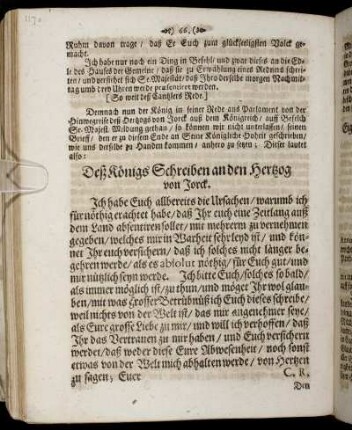 66.
Ruhm davon trage/ daß Er Euch zum glückseeligsten Volck ge-
macht.
Ich habe nur noch ein Ding in Befehl/ und zwar dieses an die Ed-
le des Hauses der Gemeine/ daß sie zu Erwählung eines Redners schrei-
ten/ und verstehet sich Se. Majestät/ daß Jhro derselbe morgen Nachmit-
tag umb drey Uhren werde præsentiret werden.
[So weit deß Cantzlers Rede]
Demnach nun der König in seiner Rede ans Parlament von der
Hinwegreise deß Hertzogs von Jorck auß dem Königreich/ auff Befehl
Se. Majest. Meldung gethan/ so können wir nicht unterlassen/ seinen
Brieff/ den er zu diesem Ende an Seine Königliche Hoheit geschrieben/
wie uns derselbe zu Handen kommen/ anhero zu setzen; Dieser lautet
also:
Deß Königs Schreiben an den Hertzog
von Jorck.
Ich habe Euch allbereits die Ursachen/ warumb ich
für nöthig erachtet habe/ daß Ihr euch eine Zeitlang auß
dem Land absentiren sollet/ mit mehrern zu vernehmen
gegeben/ welches mir in Warheit sehr leyd ist/ und kön-
net Ihr euch versichern/ daß ich solches nicht länger be-
gehren werde/ als es absolut nöthig/ für Euch gut/ und
mir nützlich seyn werde. Ich bitte Euch/ solches so bald/
als immer möglich ist/ zu thun/ und möget Ihr wol glau-
ben/ mit was Grosser Betrübnüß ich Euch dieses schreibe/
weil nichts von der Welt ist/ das mir angenehmer seye/
als Eure grosse Liebe zu mir/ und will ich verhoffen/ daß
Ihr das Vertrauen zu mir haben/ und Euch versichern
werdet/ daß weder diese Eure Abwesenheit/ noch sonst
etwas von der Welt mich abhalten werde/ von Hertzen
zu sagen; Euer C. R.
Den